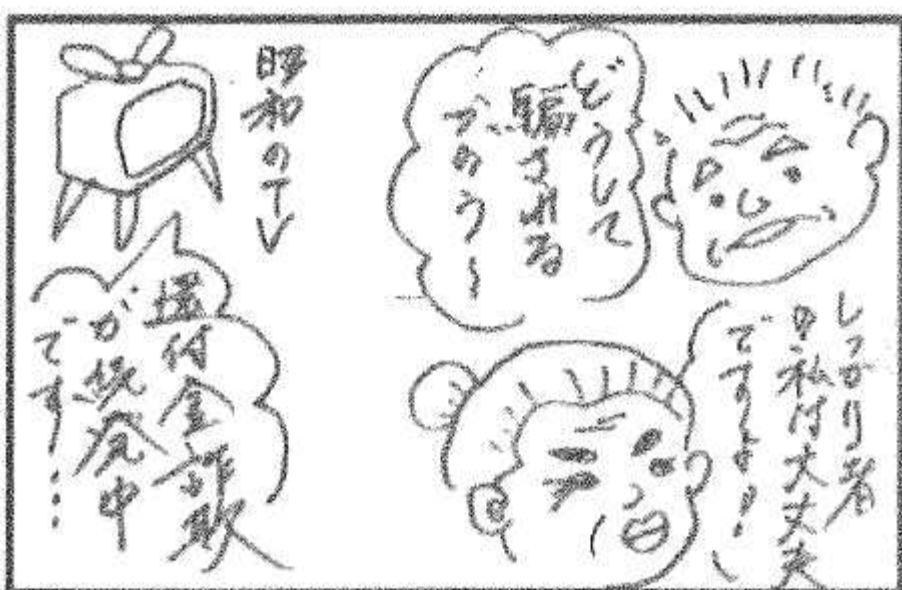 どうして
騙される
づのう~
しっかり者
の私は大丈夫
ですよ!
昭和のTV
還付金詐欺
が続発中
です・・・